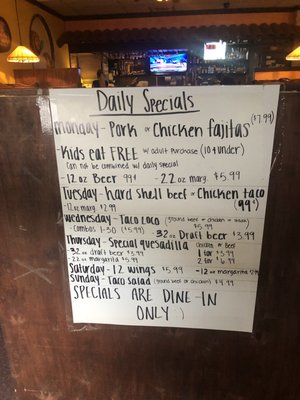 Daily Specials
monday - Pork or Chicken fajitas ($7.99)
- Kids eat FREE w/ adult purchase (10 & under)
Can not be combined w/ daily special
- 12 oz Beer 99¢ - 22 oz marg. $5.99
Tuesday - hard shell beef or Chicken taco (99¢)
- 12 oz marg. $2.99
wednesday - Taco Loco (ground beef or chicken or steak) $5.99
- Combos 1-30 ($5.99) - 32 oz Draft beer $3.99
Thursday - Special quesadilla Chicken or Beef
- 32 oz draft beer $3.99 1 for $3.99
- 22 oz margarita $5.99 2 for $6.99
Saturday - 12 wings $5.99 - 12 oz margarita $2.99
Sunday - Taco Salad (ground beef or chicken) $4.99
SPECIALS ARE DINE-IN
ONLY